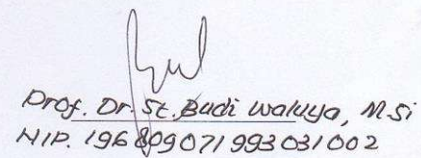 Prof. Dr. St. Budi Waluya, M.Si
NIP. 196809071993031002